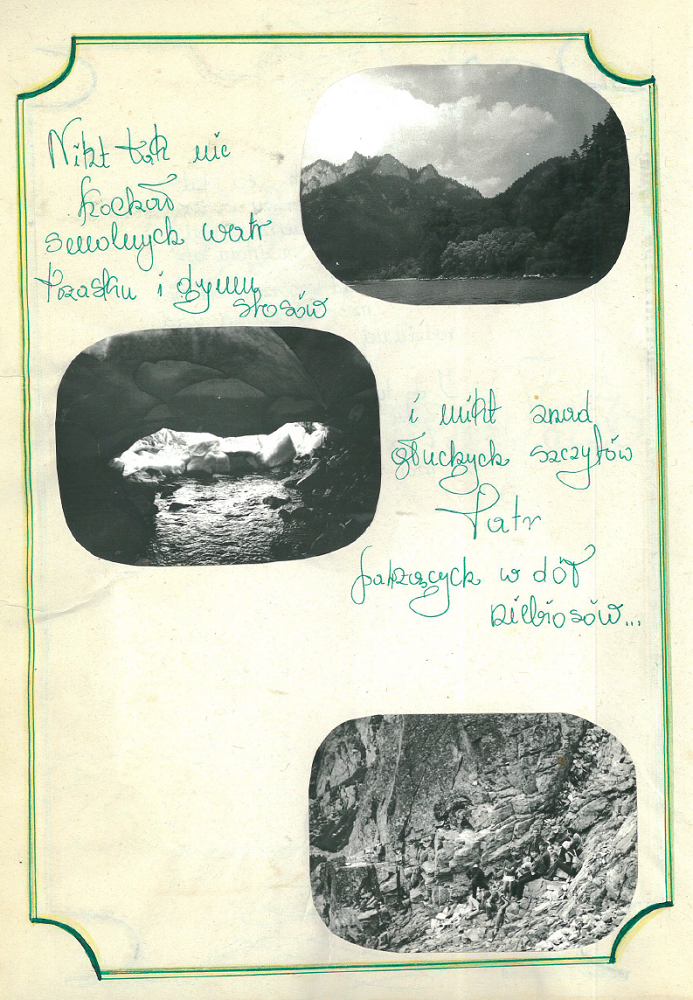 Nikt tak nie
kochał
smolnych watr
trzasku i dymu
stosów
i nikt znad
głuchych szczytów
Tatr
patrzących w dół
niebiosów...